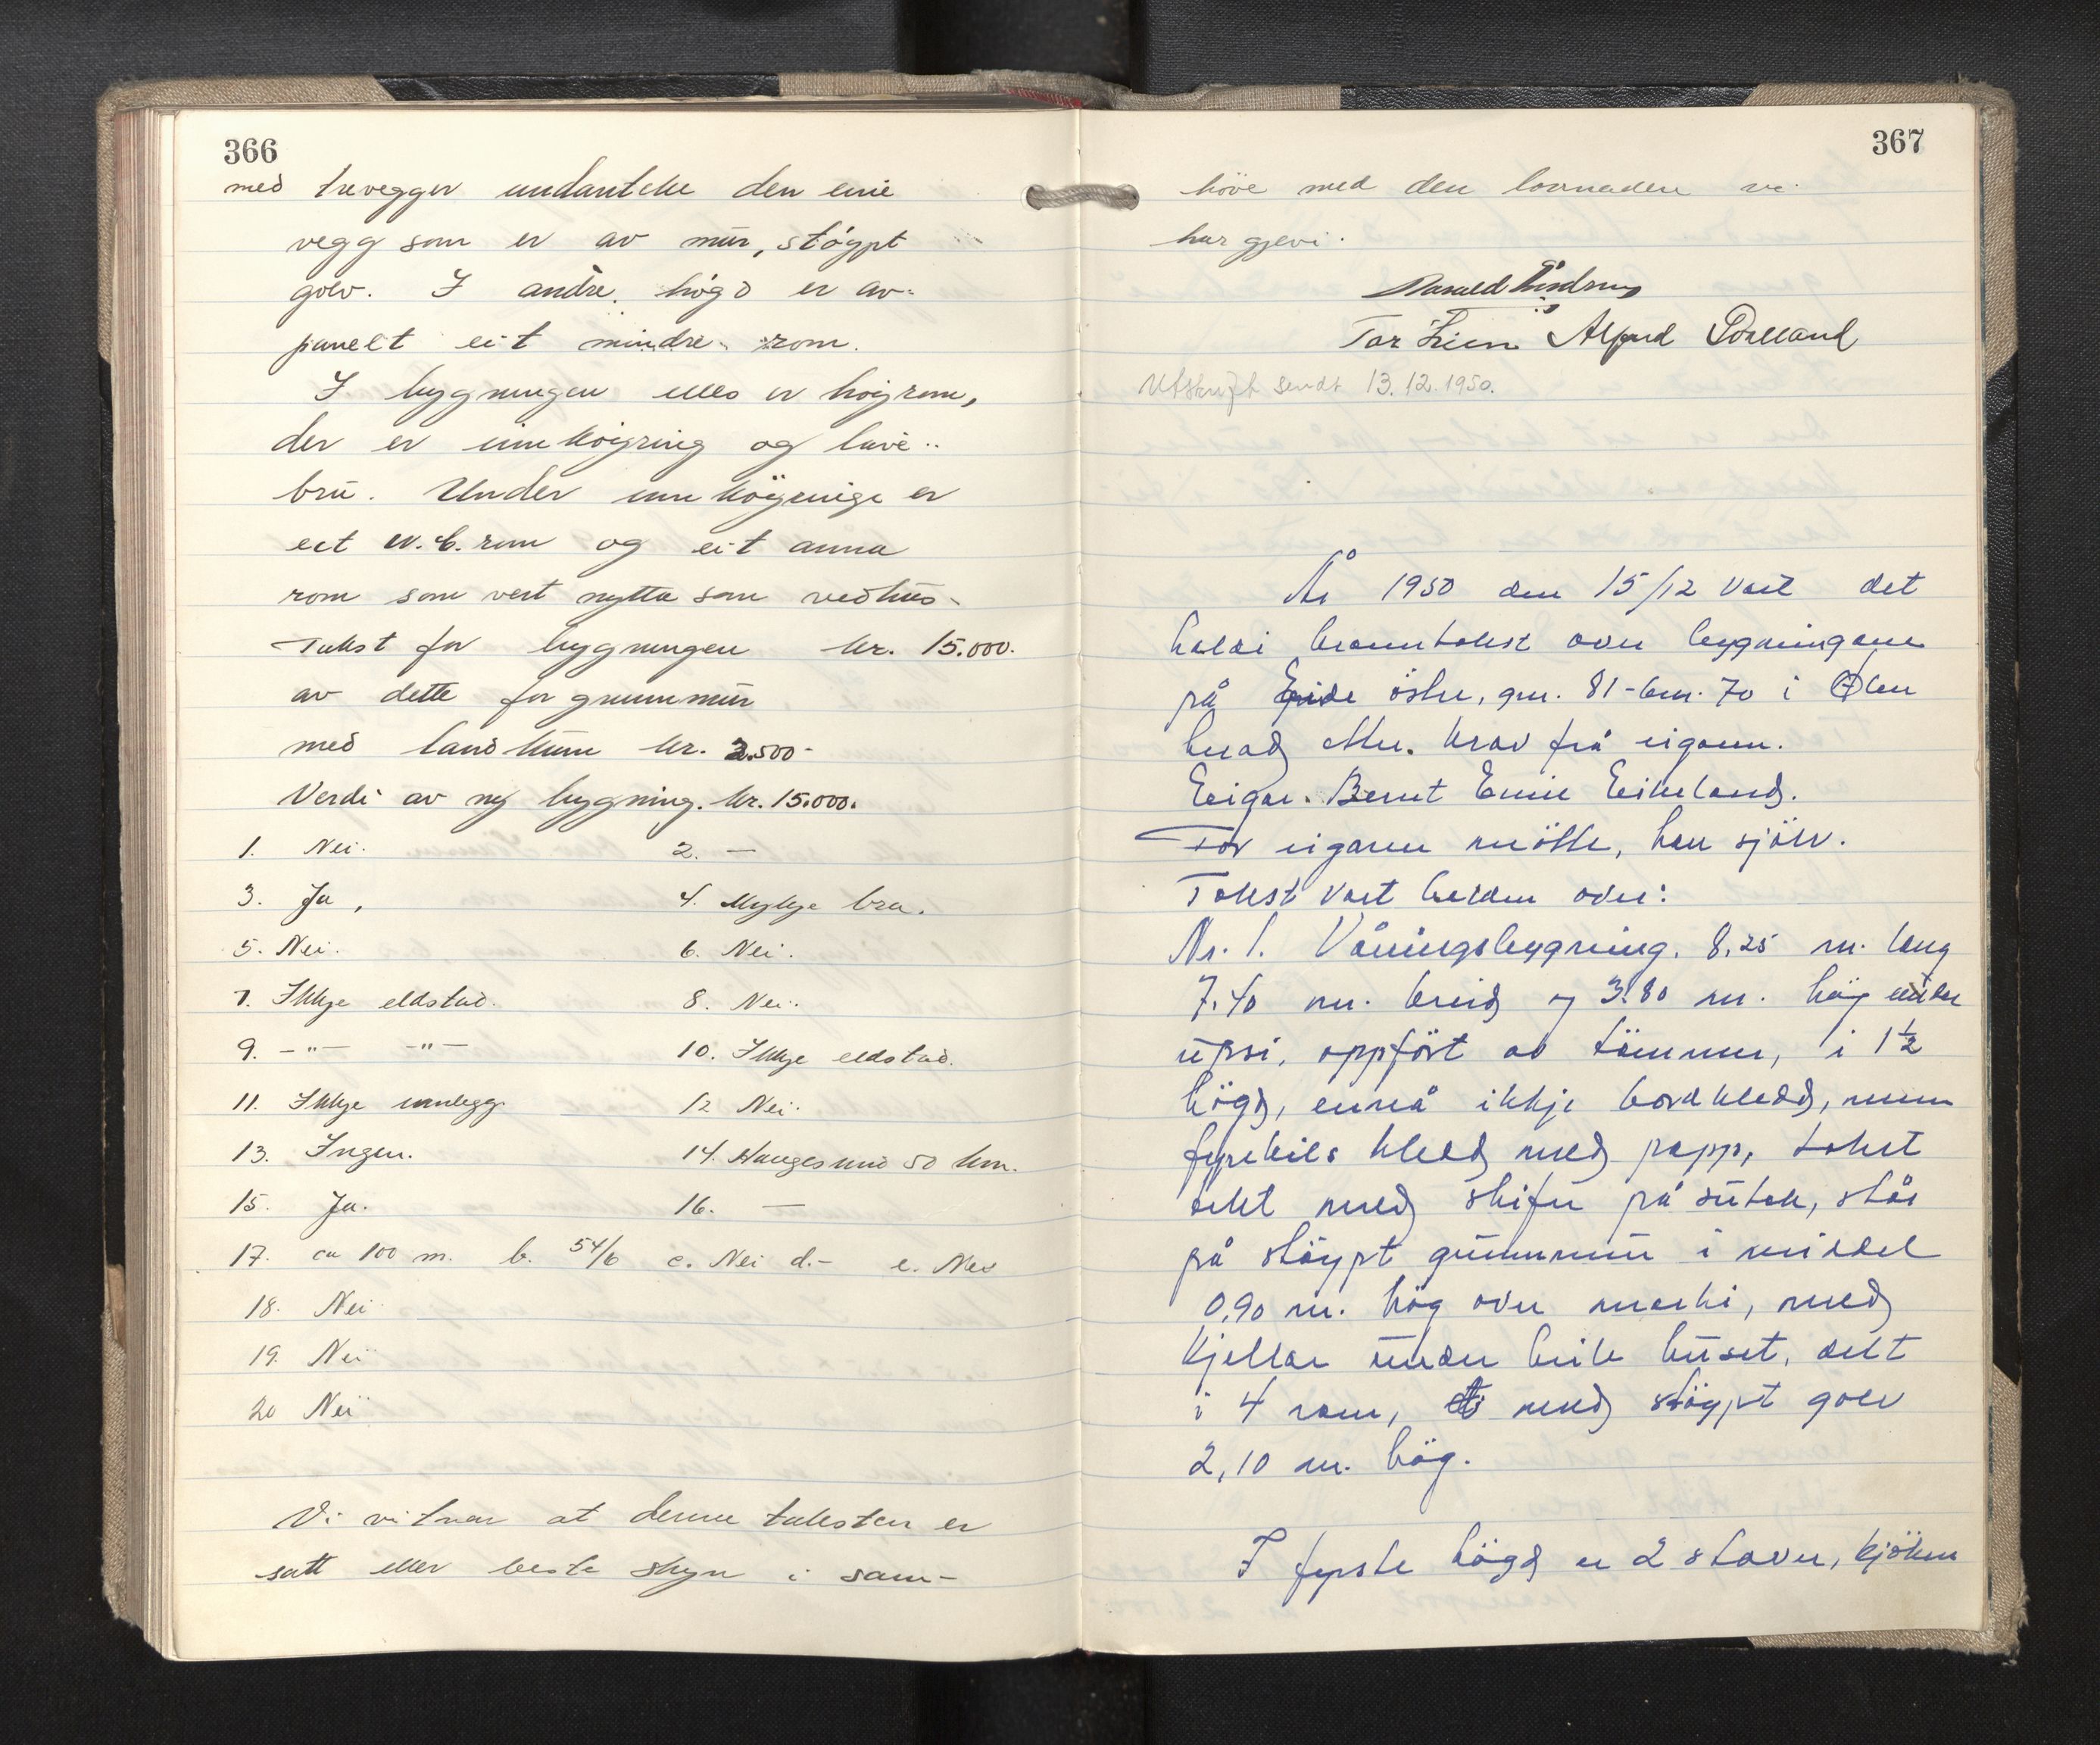 366
med trevegger undanteke den eine
vegg som er av mur, støypt
golv. I andre högd er av-
panelt eit mindre rom.
I bygningen elles er høyrom,
der er innkøigring og låve-
bru. Under innköyringi er
eit W.C. rom og eit anna
rom som vert nytta som vedhus.
Takst for bygningen kr. 15.000.
av dette for grunnmur
med landkum kr. 2.500-
Verdi av ny bygning. kr. 15.000.
1. Nei. 2. —
3. Ja, 4. Mykje bra.
5. Nei. 6. Nei.
7. Ikkje eldstad. 8. Nei.
9. -"- -"- 10. Ikkje eldstad.
11. Ikkje innlegg. 12 Nei.
13. Ingen. 14. Haugesund 50 km.
15. Ja. 16. —
17. ca 100 m. b. 54/6 c. Nei d.- e. Nei
18. Nei
19. Nei
20 Nei
Vi vitnar at denne taksten er
satt etter beste skyn i sam-
367
høve med den lovnaden vi
har gjevi.
Tor Lien Alfred
Utskrift sendt 13.12.1950.
År 1950 den 15/12 vart det
haldi branntakst over bygningane
på Eide östre, gnr. 81 - bnr. 70 i Ølen
herad etter krav frå eigaren.
Eigar. Bernt Emil Eikeland.
For eigaren møtte, han sjölv.
Takst vart halden over:
Nr. 1. Våningsbygning. 8,25 m. lang
7.40 m. breid og 3.80 m. høg under
upsi, oppfört av tömmer, i 1½
högd, ennå ikkje bordkledd, men
fyrebils kledd med papp, taket
tekt med skifer på sutak, står
på støypt grunnmur i middel
0,90 m. høg over marki, med
Kjellar under heile huset, delt
i 4 rom, med støypt golv
2,10 m. høg.
I fyrste högd er 2 stover, kjöken